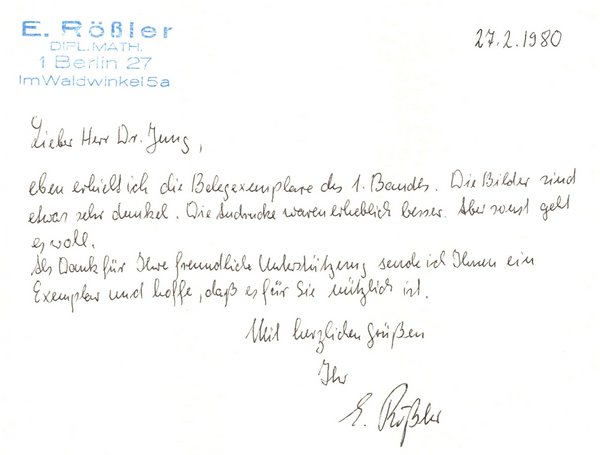 E. Rößler
DIPL. MATH.
1 Berlin 27
Im Waldwinkel 5a
27.2.1980
Lieber Herr Dr. Jung,
eben erhielt ich die Belegexemplare des 1. Bandes. Die Bilder sind
etwas sehr dunkel. Die Andrucke waren erheblich besser. Aber sonst geht
es wohl.
Als Dank für Ihre freundliche Unterstützung sende ich Ihnen ein
Exemplar und hoffe, daß es für Sie nützlich ist.
Mit herzlichen Grüßen
Ihr
E. Rößler